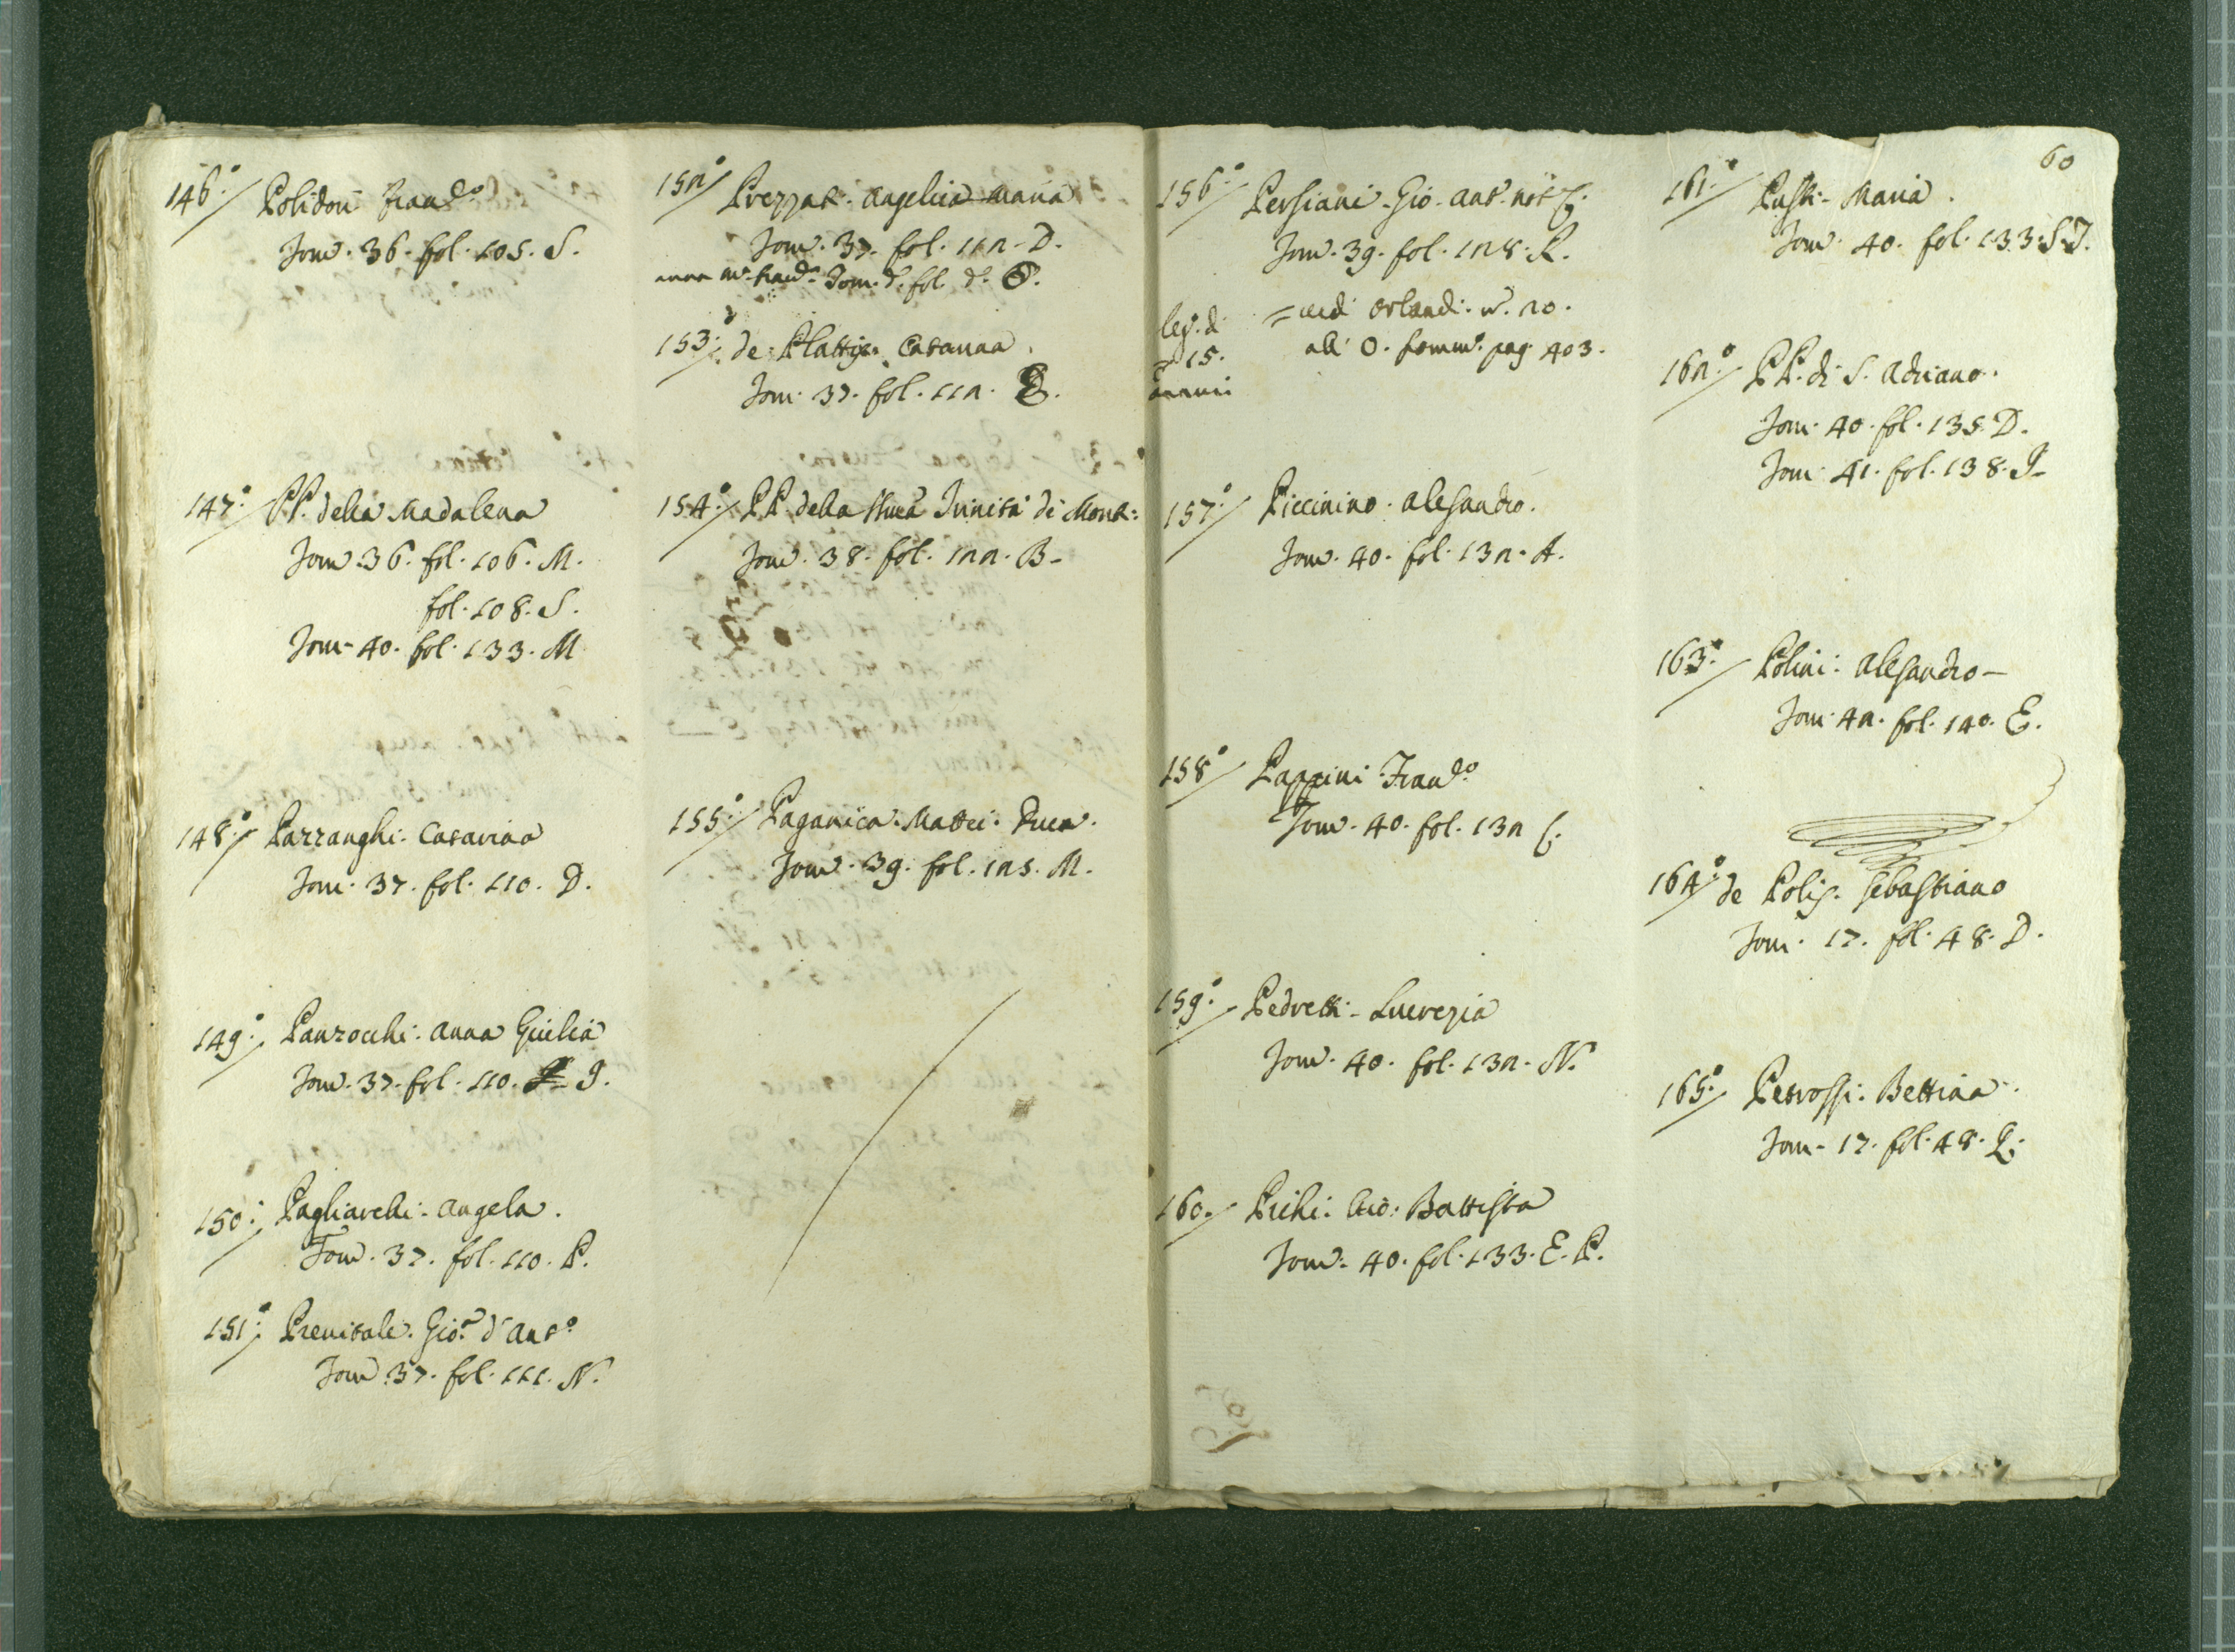 146. Polidori Franc.o
Tom. 36. fol. 105. S.
147. PP. della Madalena
Tom. 36. fol. 106. M.
fol. 108. S.
Tom. 40. fol. 133. M
148. Pazzanghi. Catarina
Tom. 37. fol. 110. D.
149. Panzocchi. Anna Giulia
Tom. 37. fol. 110. I.
150. Pagliarelli. Angela.
Tom. 37. fol. 110. P.
151. Prenitale. Gio. d'Ant.o
Tom. 37. fol. 111. N.
152 Prezzat. Angelica Maria
Tom. 37. fol. 112. D.
Tom. d. fol. d. O.
153. de Plattis. Catarina.
Tom. 37. fol. 112.
154. PP. della Trinità di Mont:
Tom. 38. fol. 122. B.
155. Paganica. Mattei. Duca.
Tom. 39. fol. 125. M.
60
156. Persiani. Gio. Ant. not
Tom. 39. fol. 128. R.
leg. d. = Orlandi. n. 20.
15. all' O. pag. 403.
157. Piccinino. Alesandro.
Tom. 40. fol. 132. A.
158 Pappini Franc.o
Tom. 40. fol. 132 C.
159. Pedretti. Lucrezia
Tom. 40. fol. 132. N.
160. Pichi. Gio: Battista
Tom. 40. fol. 133. E. P.
161. Pusti. Maria.
Tom. 40. fol. 133. S. T.
162. PP. di S. Adriano.
Tom. 40. fol. 135. D.
Tom. 41. fol. 138. I.
163. Polini. Alesandro
Tom. 42. fol. 140. E.
164. de Polis. Sebastiano
Tom. 17. fol. 48. D.
165. Petrossi. Bettina.
Tom. 17. fol. 48. Q.